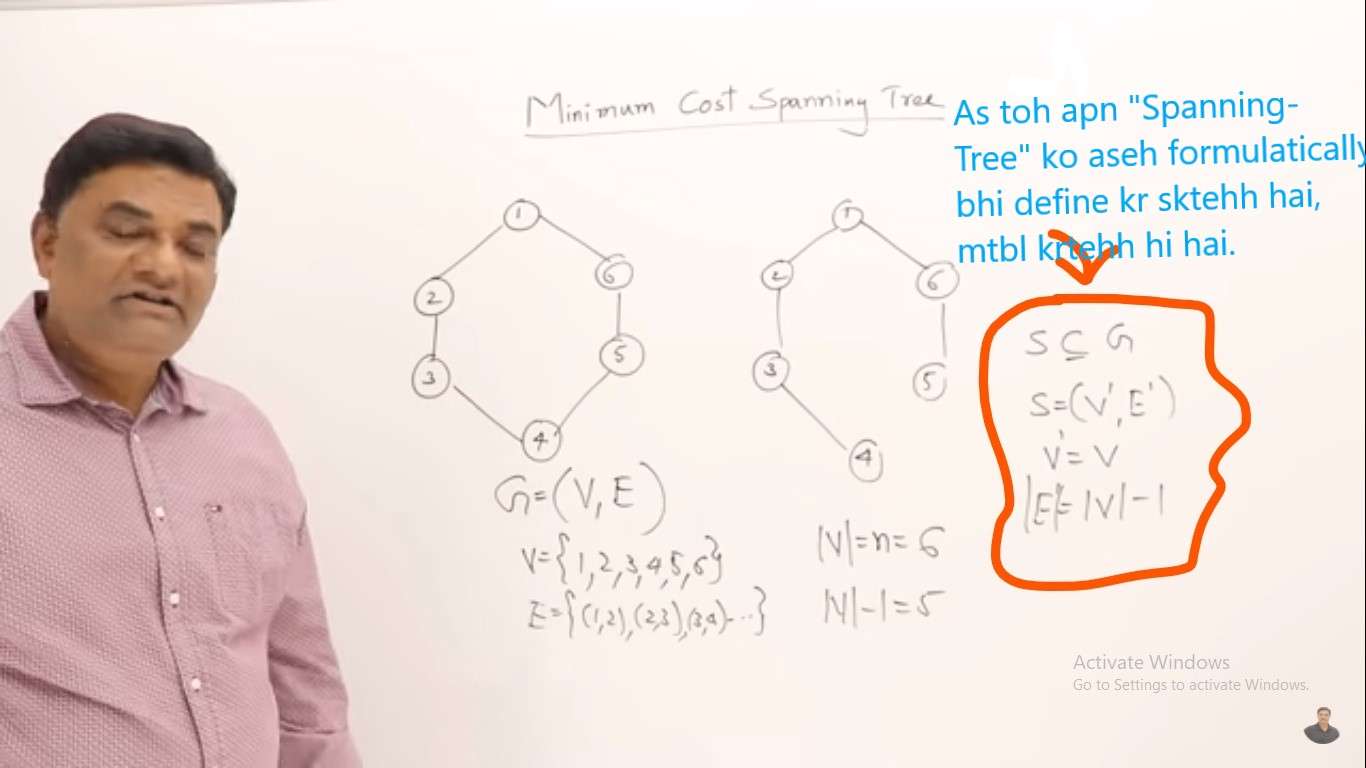 Minimum Cost Spanning Tree
As toh apn "Spanning-
Tree" ko aseh formulatically
bhi define kr sktehh hai,
mtbl krtehh hi hai.
1
2
6
3
5
4
1
2
6
3
5
4
G=(V,E)
V={1,2,3,4,5,6}
E={(1,2),(2,3),(3,4)-...}
|V|=n=6
|V|-1=5
S⊆G
S=(V',E')
V'=V
|E'|=|V|-1
Activate Windows
Go to Settings to activate Windows.